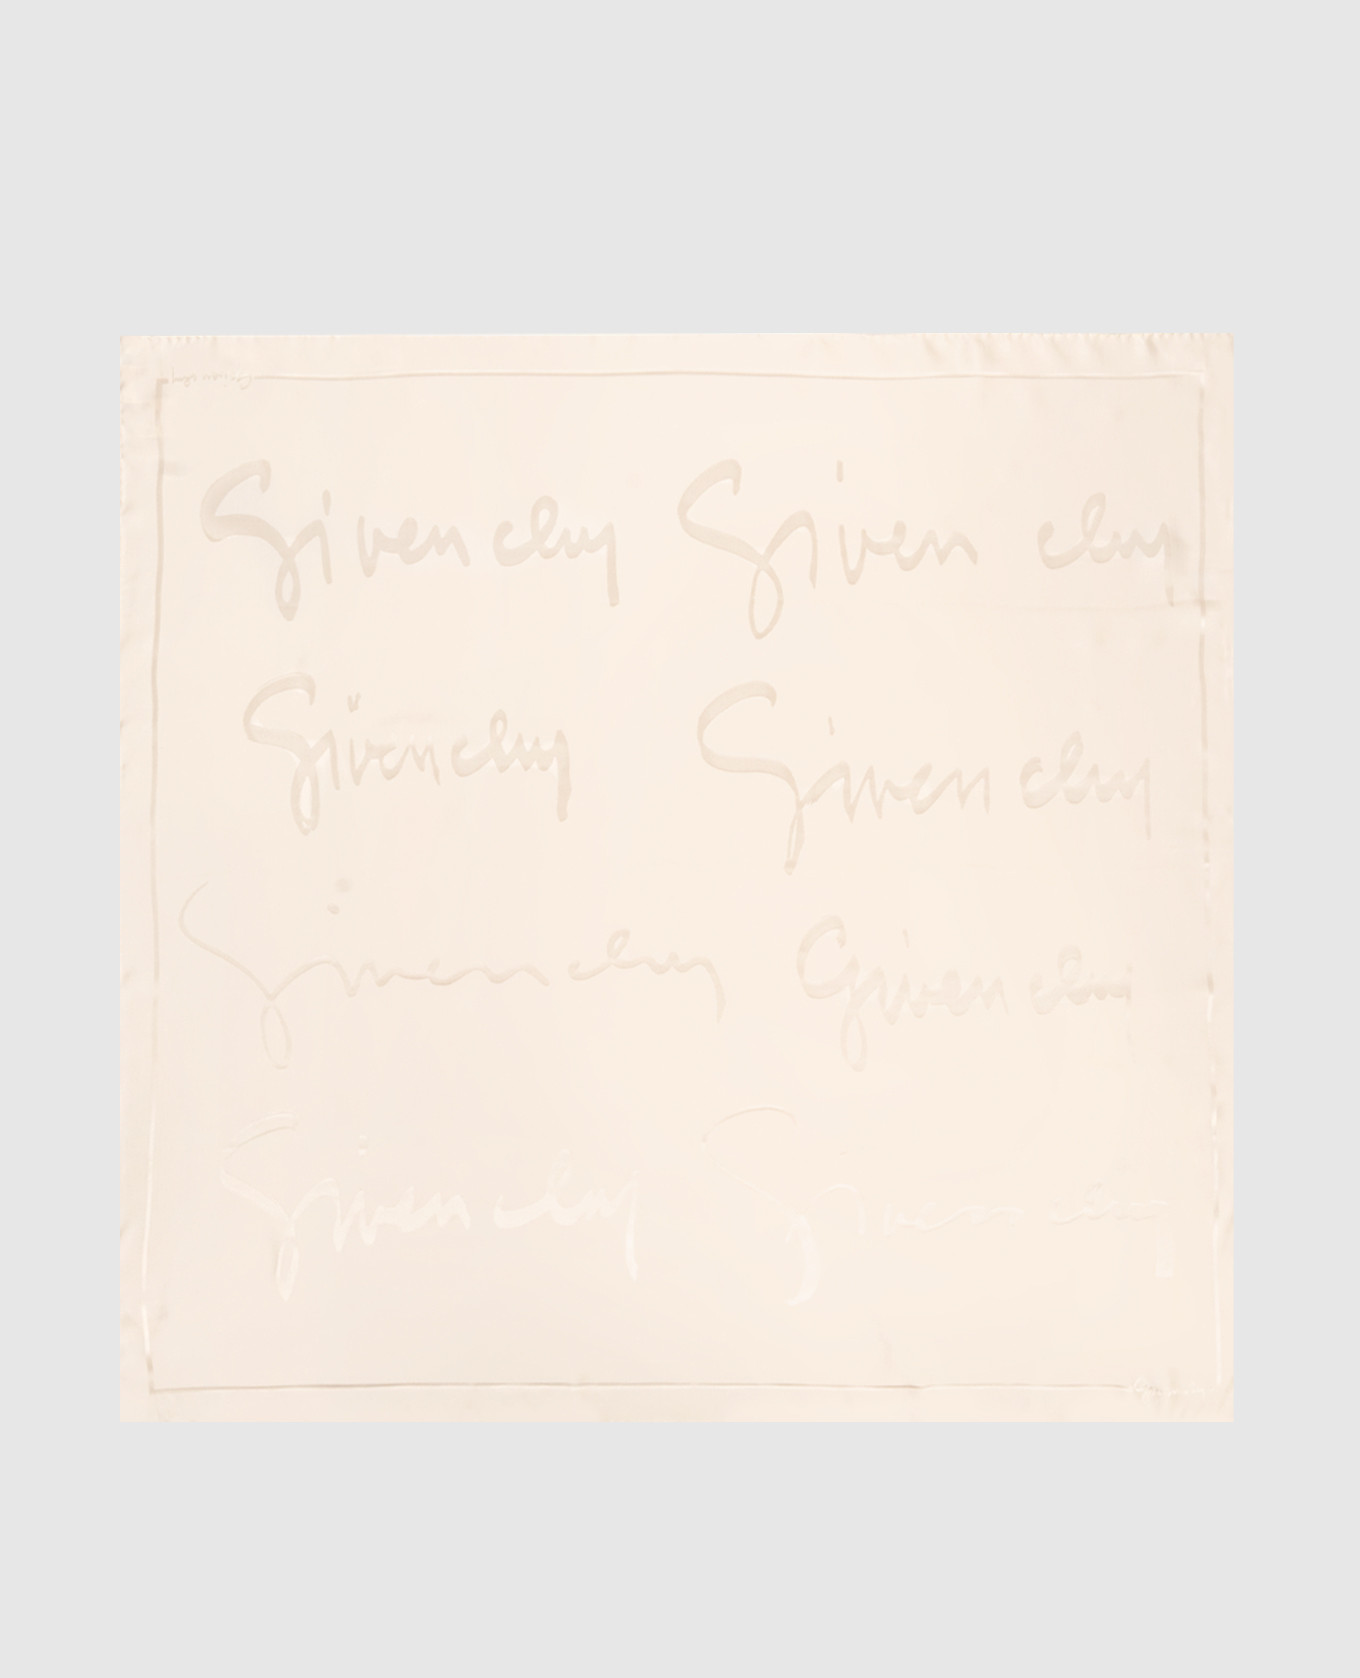 Givenchy Givenchy
Givenchy Givenchy
Givenchy Givenchy
Givenchy Givenchy